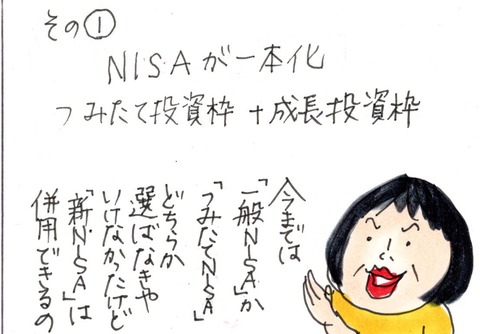 その①
NISAが一本化
つみたて投資枠+成長投資枠
今までは
「一般NISA」か
「つみたてNISA」
どちらか
選ばなきゃ
いけなかったけど
「新NISA」は
併用できるの